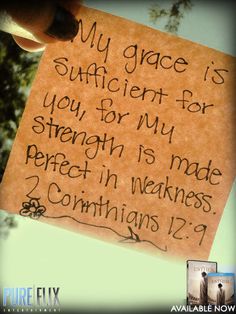 My grace is
sufficient for
you, for My
strength is made
perfect in weakness.
2 Corinthians 12:9
PURE FLIX
ENTERTAINMENT
AVAILABLE NOW